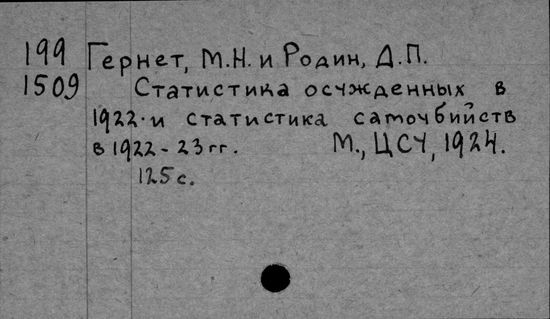 199 Гернет, М.Н. и Родин, Д.П.
1509 Статистика осужденных в
1922 и статистика самоубийств
в 1922-23 гг. М., ЦСУ, 1924.
125 с.